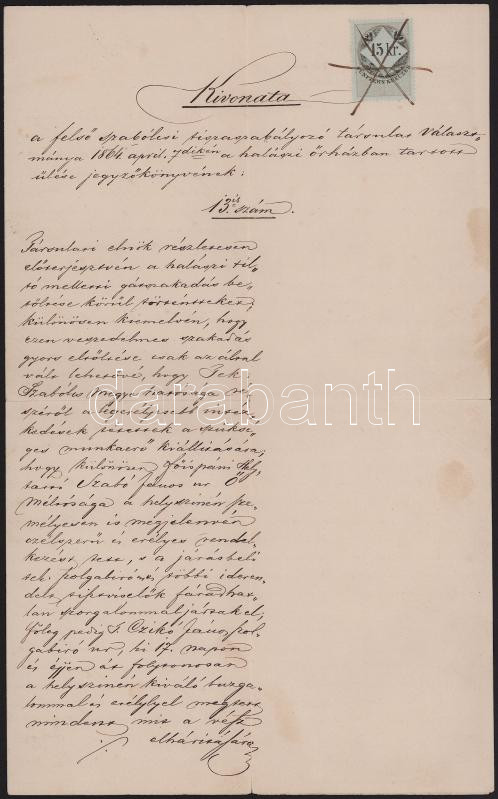 15 kr.
Kivonata
a felső szabolcsi tiszaszabályozó társulat Választ-
mánya 1864 april. 7dikén a halászi őrházban tartott
ülése jegyzőkönyvének:
13ik szám.
Társulati elnök részletesen
előterjesztvén a halászi til-
tó melletti gátszakadás be-
töltése körül történteket,
különösen kiemelvén, hogy
ezen veszedelmes szakadás
gyors eltöltése csak az által
vált lehetővé, hogy Tek.
Szabolcs megye hatósága ré-
széről a legerélyesebb intéz-
kedések tétettek a szüksé-
ges munkaerő kiállitására,
hogy különösen Főispáni Hely-
tartó Szabó János ur Ő
Méltósága a helyszinén sze-
mélyesen is megjelenvén
czélszerü és erélyes rendel-
kezést tett, s a járásbeli
szolgabiró és többi ideren-
delt tisztviselők fáradhat-
lan szorgalommal jártak el,
főleg pedig T. Czikó János szol-
gabiró ur, ki 17. napon
és éjjen át folytonosan
a helyszinén kiváló buzga-
lommal és erélylyel megtett
mindent mit a vész
elháritására
darabanth